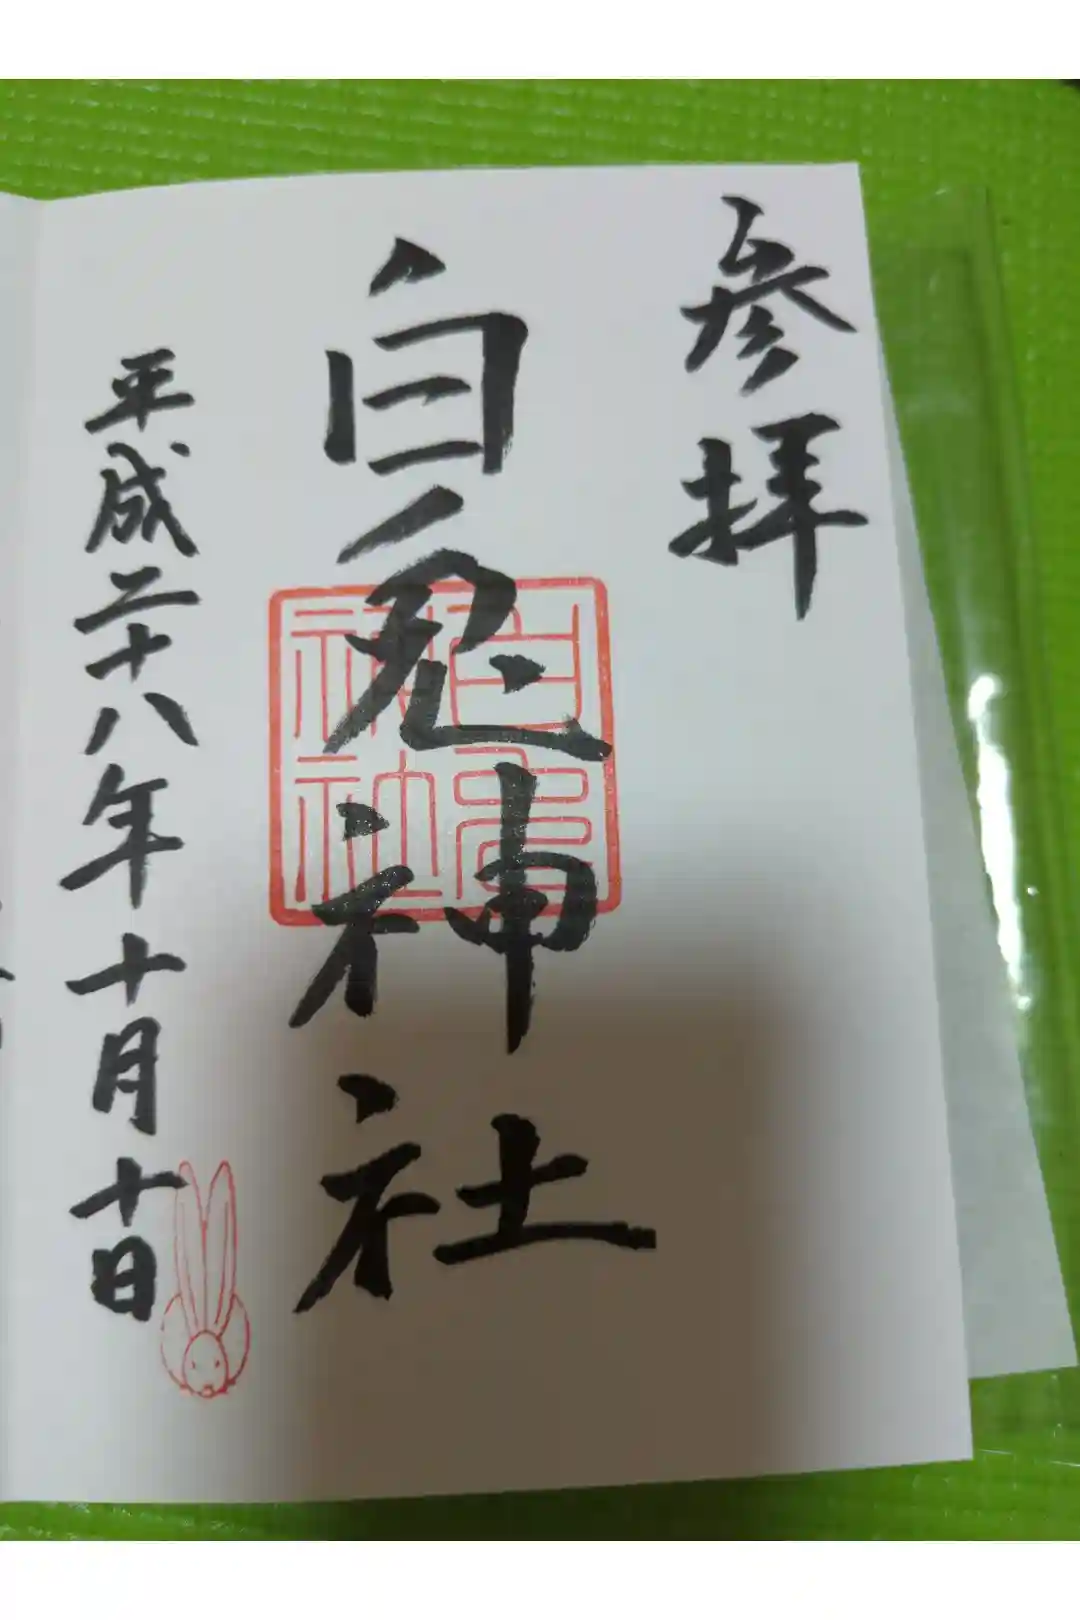 參拝
白兎神社
白兎神社
平成二十八年十月十日